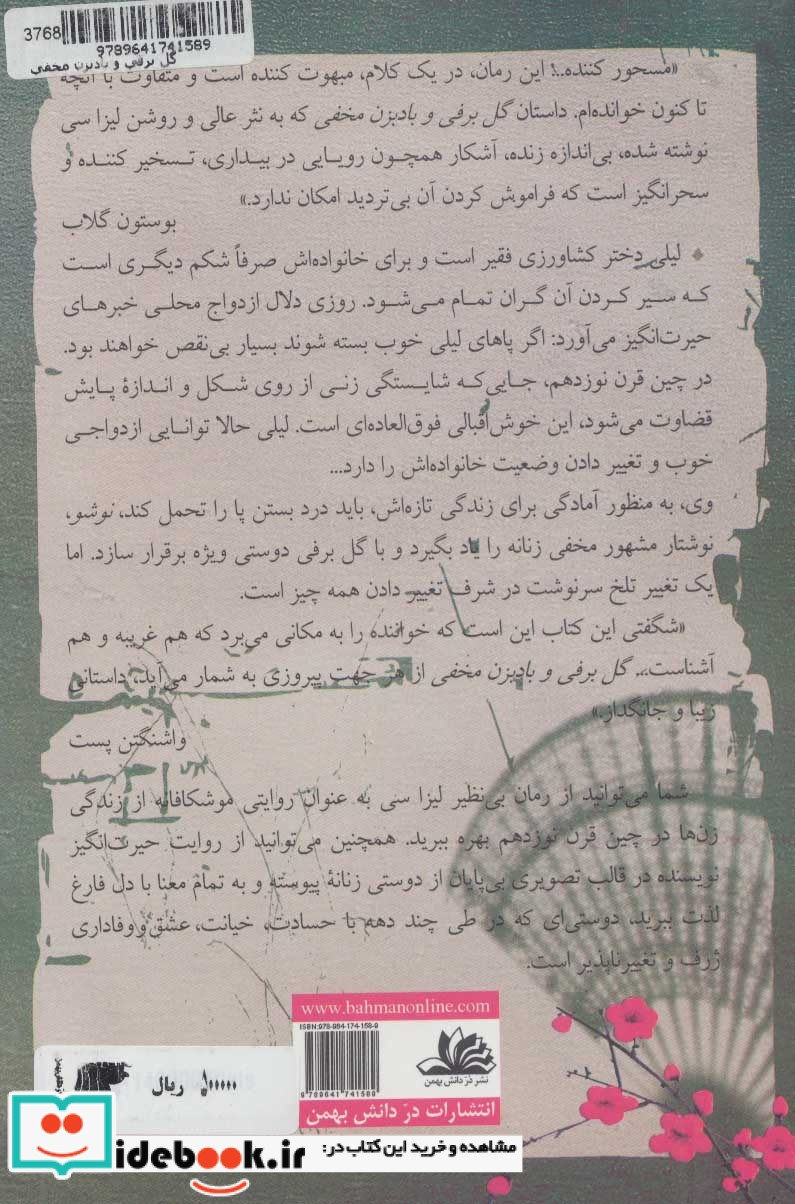 3768
9789641741589
گل برفی و بادبزن مخفی
«مسحور کننده..؛ این رمان، در یک کلام، مبهوت کننده است و متفاوت با آنچه
تا کنون خوانده‌ام. داستان گل برفی و بادبزن مخفی که به نثر عالی و روشن لیزا سی
نوشته شده، بی‌اندازه زنده، آشکار همچون رویایی در بیداری، تسخیر کننده و
سحرانگیز است که فراموش کردن آن بی‌تردید امکان ندارد.»
بوستون گلاب
لیلی دختر کشاورزی فقیر است و برای خانواده‌اش صرفاً شکم دیگری است
که سیر کردن آن گران تمام می‌شود. روزی دلال ازدواج محلی خبرهای
حیرت‌انگیز می‌آورد: اگر پاهای لیلی خوب بسته شوند بسیار بی‌نقص خواهند بود.
در چین قرن نوزدهم، جایی‌که شایستگی زنی از روی شکل و اندازۀ پایش
قضاوت می‌شود، این خوش‌اقبالی فوق‌العاده‌ای است. لیلی حالا توانایی ازدواجی
خوب و تغییر دادن وضعیت خانواده‌اش را دارد...
وی، به منظور آمادگی برای زندگی تازه‌اش، باید درد بستن پا را تحمل کند، نوشو،
نوشتار مشهور مخفی زنانه را یاد بگیرد و با گل برفی دوستی ویژه برقرار سازد. اما
یک تغییر تلخ سرنوشت در شرف تغییر دادن همه چیز است.
«شگفتی این کتاب این است که خواننده را به مکانی می‌برد که هم غریبه و هم
آشناست... گل برفی و بادبزن مخفی از هر جهت پیروزی به شمار می‌آید، داستانی
زیبا و جانگداز.»
واشنگتن پست
شما می‌توانید از رمان بی‌نظیر لیزا سی به عنوان روایتی موشکافانه از زندگی
زن‌ها در چین قرن نوزدهم بهره ببرید. همچنین می‌توانید از روایت حیرت‌انگیز
نویسنده در قالب تصویری بی‌پایان از دوستی زنانۀ پیوسته و به تمام معنا با دل فارغ
لذت ببرید، دوستی‌ای که در طی چند دهه با حسادت، خیانت، عشق‌و‌وفاداری
ژرف و تغییرناپذیر است.
www.bahmanonline.com
ISBN:978-964-174-158-9
9789641741589
نشر دُر دانش بهمن
انتشارات دُر دانش بهمن
ریال
مشاهده و خرید این کتاب در:
idebook.ir